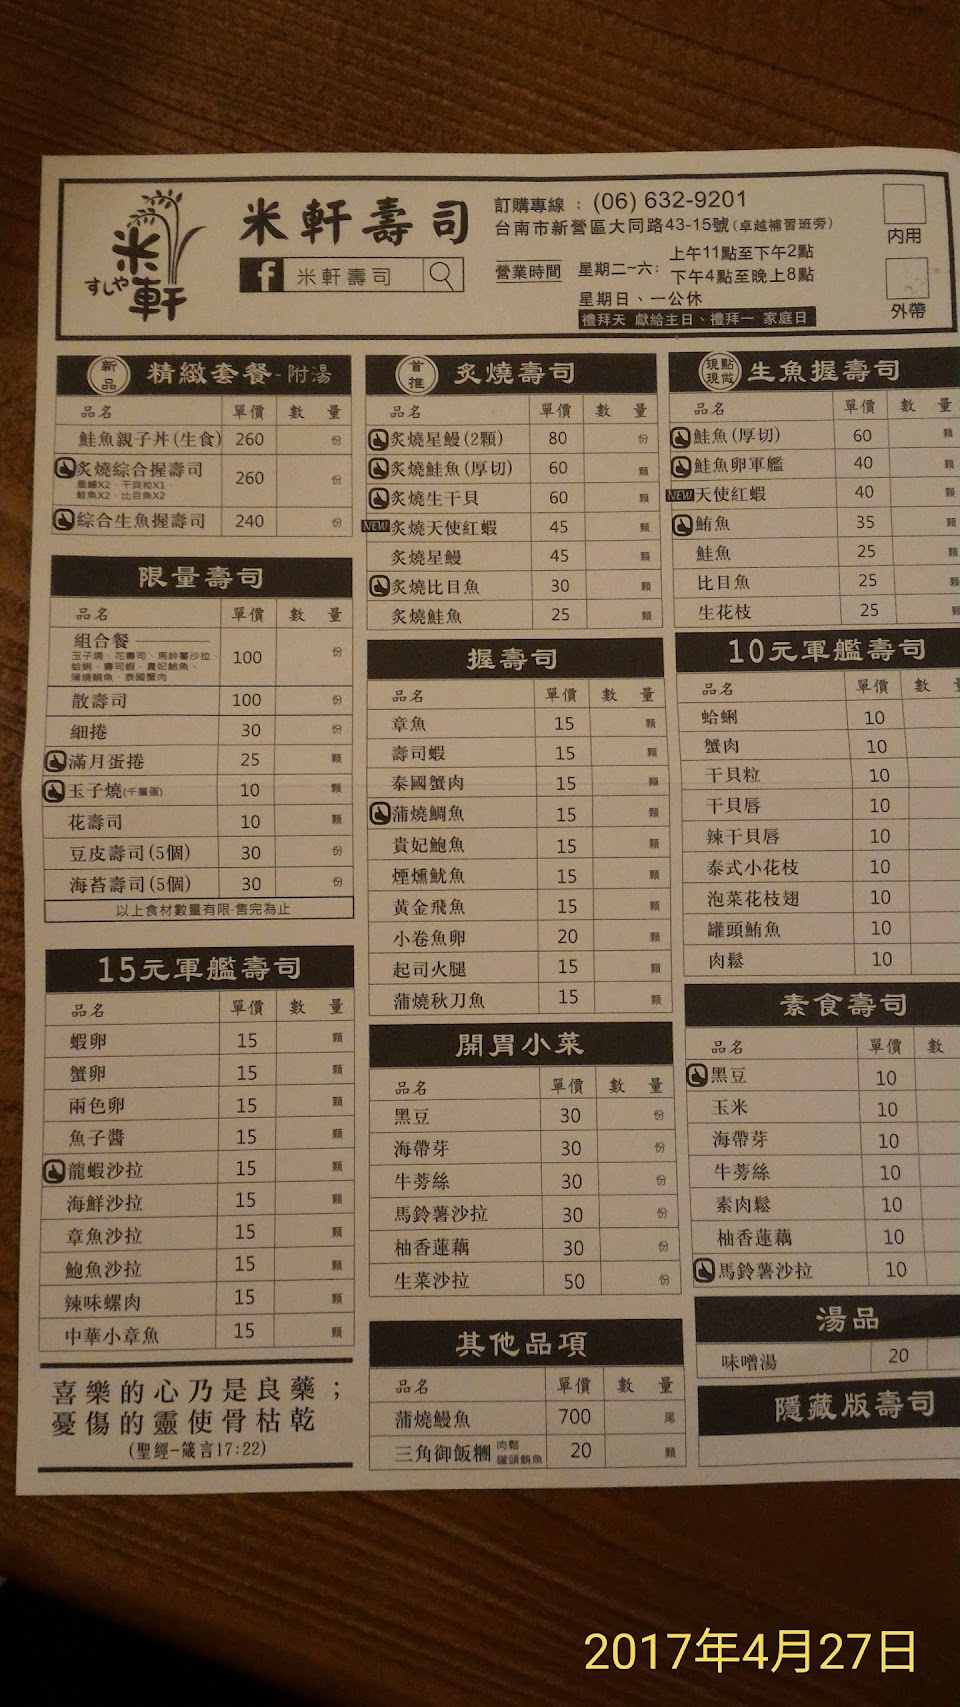 米軒
すしや
米軒壽司
f 米軒壽司
訂購專線：(06) 632-9201
台南市新營區大同路43-15號(卓越補習班旁)
營業時間 星期二~六： 上午11點至下午2點
下午4點至晚上8點
星期日、一公休
禮拜天 獻給主日、禮拜一 家庭日
內用
外帶
新品 精緻套餐-附湯
品名 單價 數 量
鮭魚親子丼(生食) 260 份
炙燒綜合握壽司 260 份
星鰻X2、干貝粒X1、
鮭魚X2、比目魚X2
綜合生魚握壽司 240 份
限量壽司
品名 單價 數 量
組合餐 100 份
玉子燒、花壽司、馬鈴薯沙拉、
蛤蜊、壽司蝦、貴妃鮑魚、
蒲燒鯛魚、泰國蟹肉
散壽司 100 份
細捲 30 份
滿月蛋捲 25 顆
玉子燒(千層蛋) 10 顆
花壽司 10 顆
豆皮壽司(5個) 30 份
海苔壽司(5個) 30 份
以上食材數量有限‧售完為止
15元軍艦壽司
品名 單價 數 量
蝦卵 15 顆
蟹卵 15 顆
兩色卵 15 顆
魚子醬 15 顆
龍蝦沙拉 15 顆
海鮮沙拉 15 顆
章魚沙拉 15 顆
鮑魚沙拉 15 顆
辣味螺肉 15 顆
中華小章魚 15 顆
喜樂的心乃是良藥；
憂傷的靈使骨枯乾
(聖經-箴言17:22)
首推 炙燒壽司
品名 單價 數 量
炙燒星鰻(2顆) 80 份
炙燒鮭魚(厚切) 60 顆
炙燒生干貝 60 顆
NEW 炙燒天使紅蝦 45 顆
炙燒星鰻 45 顆
炙燒比目魚 30 顆
炙燒鮭魚 25 顆
握壽司
品名 單價 數 量
章魚 15 顆
壽司蝦 15 顆
泰國蟹肉 15 顆
蒲燒鯛魚 15 顆
貴妃鮑魚 15 顆
煙燻魷魚 15 顆
黃金飛魚 15 顆
小卷魚卵 20 顆
起司火腿 15 顆
蒲燒秋刀魚 15 顆
開胃小菜
品名 單價 數 量
黑豆 30 份
海帶芽 30 份
牛蒡絲 30 份
馬鈴薯沙拉 30 份
柚香蓮藕 30 份
生菜沙拉 50 份
其他品項
品名 單價 數 量
蒲燒鰻魚 700 尾
三角御飯糰 肉鬆 罐頭鮪魚 20 顆
現點現做 生魚握壽司
品名 單價 數 量
鮭魚(厚切) 60 顆
鮭魚卵軍艦 40 顆
NEW 天使紅蝦 40 顆
鮪魚 35 顆
鮭魚 25 顆
比目魚 25 顆
生花枝 25 顆
10元軍艦壽司
品名 單價 數
蛤蜊 10
蟹肉 10
干貝粒 10
干貝唇 10
辣干貝唇 10
泰式小花枝 10
泡菜花枝翅 10
罐頭鮪魚 10
肉鬆 10
素食壽司
品名 單價 數
黑豆 10
玉米 10
海帶芽 10
牛蒡絲 10
素肉鬆 10
柚香蓮藕 10
馬鈴薯沙拉 10
湯品
味噌湯 20
隱藏版壽司
2017年4月27日